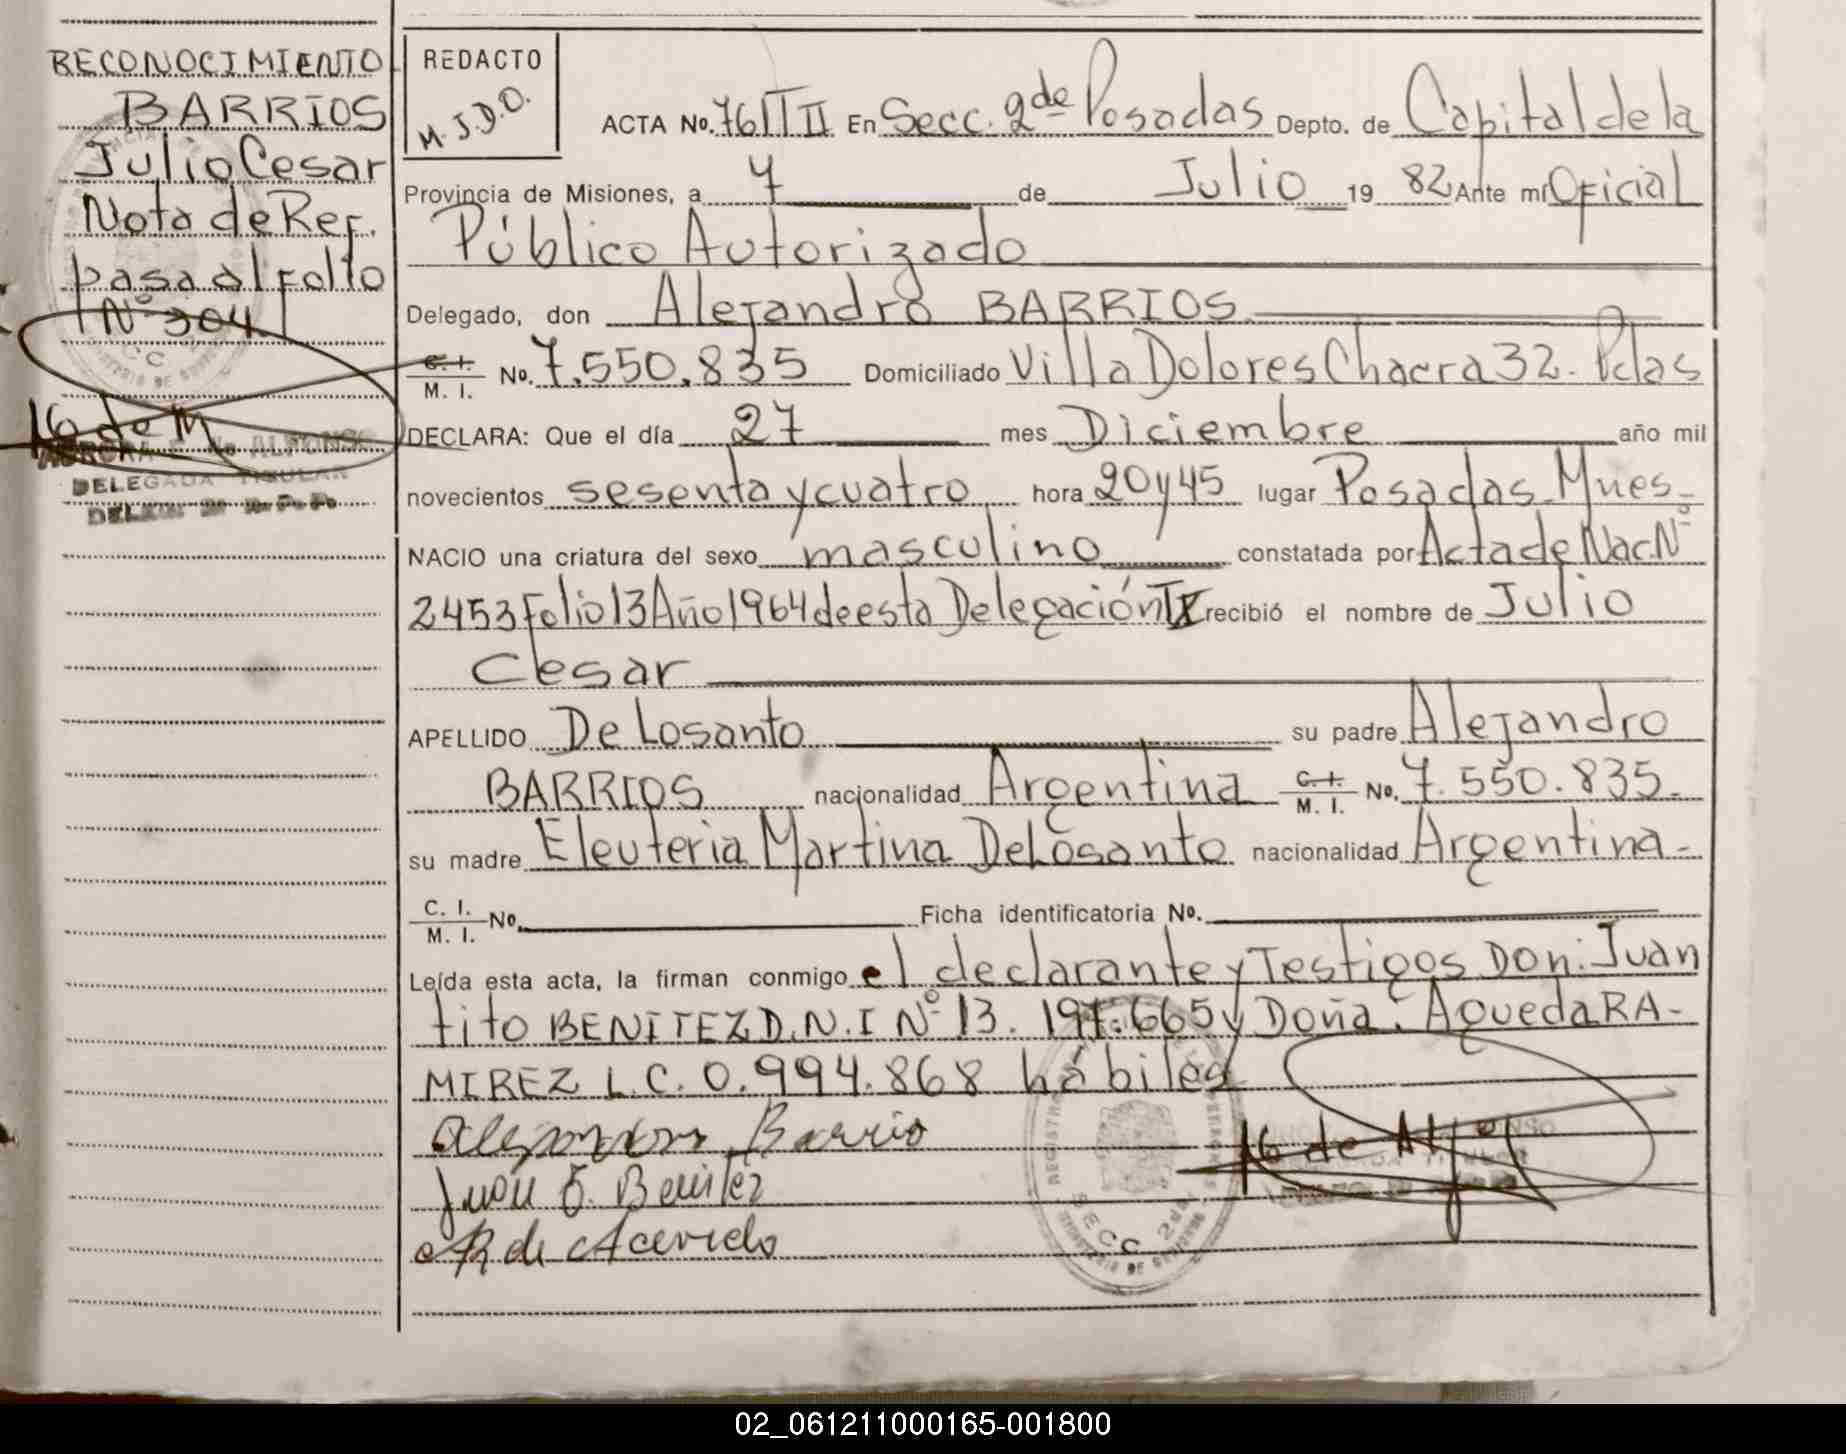 RECONOCIMIENTO
BARRIOS
Julio Cesar
Nota de Ref.
pasa al Folio
Nº 304
DELEGADA TITULAR
REDACTO
M.J.D.O.
ACTA No. 761 T II En Secc. 2da Posadas Depto. de Capital de la
Provincia de Misiones, a 7 de Julio 19 82 Ante mí Oficial
Público Autorizado
Delegado, don Alejandro BARRIOS
C. I. / M. I. No. 7.550.835 Domiciliado Villa Dolores Chacra 32. Pdas
DECLARA: Que el día 27 mes Diciembre año mil
novecientos sesenta y cuatro hora 20 y 45 lugar Posadas Mnes-
NACIO una criatura del sexo masculino constatada por Acta de Nac. Nº
2453 Folio 13 Año 1964 de esta Delegación recibió el nombre de Julio
Cesar
APELLIDO De Losanto su padre Alejandro
BARRIOS nacionalidad Argentina C. I. / M. I. No. 7.550.835.
su madre Eleuteria Martina De Losanto nacionalidad Argentina-
C. I. / M. I. No. Ficha identificatoria No.
Leída esta acta, la firman conmigo el declarante y Testigos Don: Juan
tito BENITEZ D.N.I Nº 13. 197.665 y Doña: Agueda RA-
MIREZ L.C. 0.994.868 hábiles
Alejandro Barrio
Juan T. Benitez
R de Acevedo
SECC 2da
02_061211000165-001800